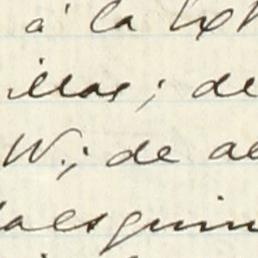 á la
illas; de
W.; de
la esquin